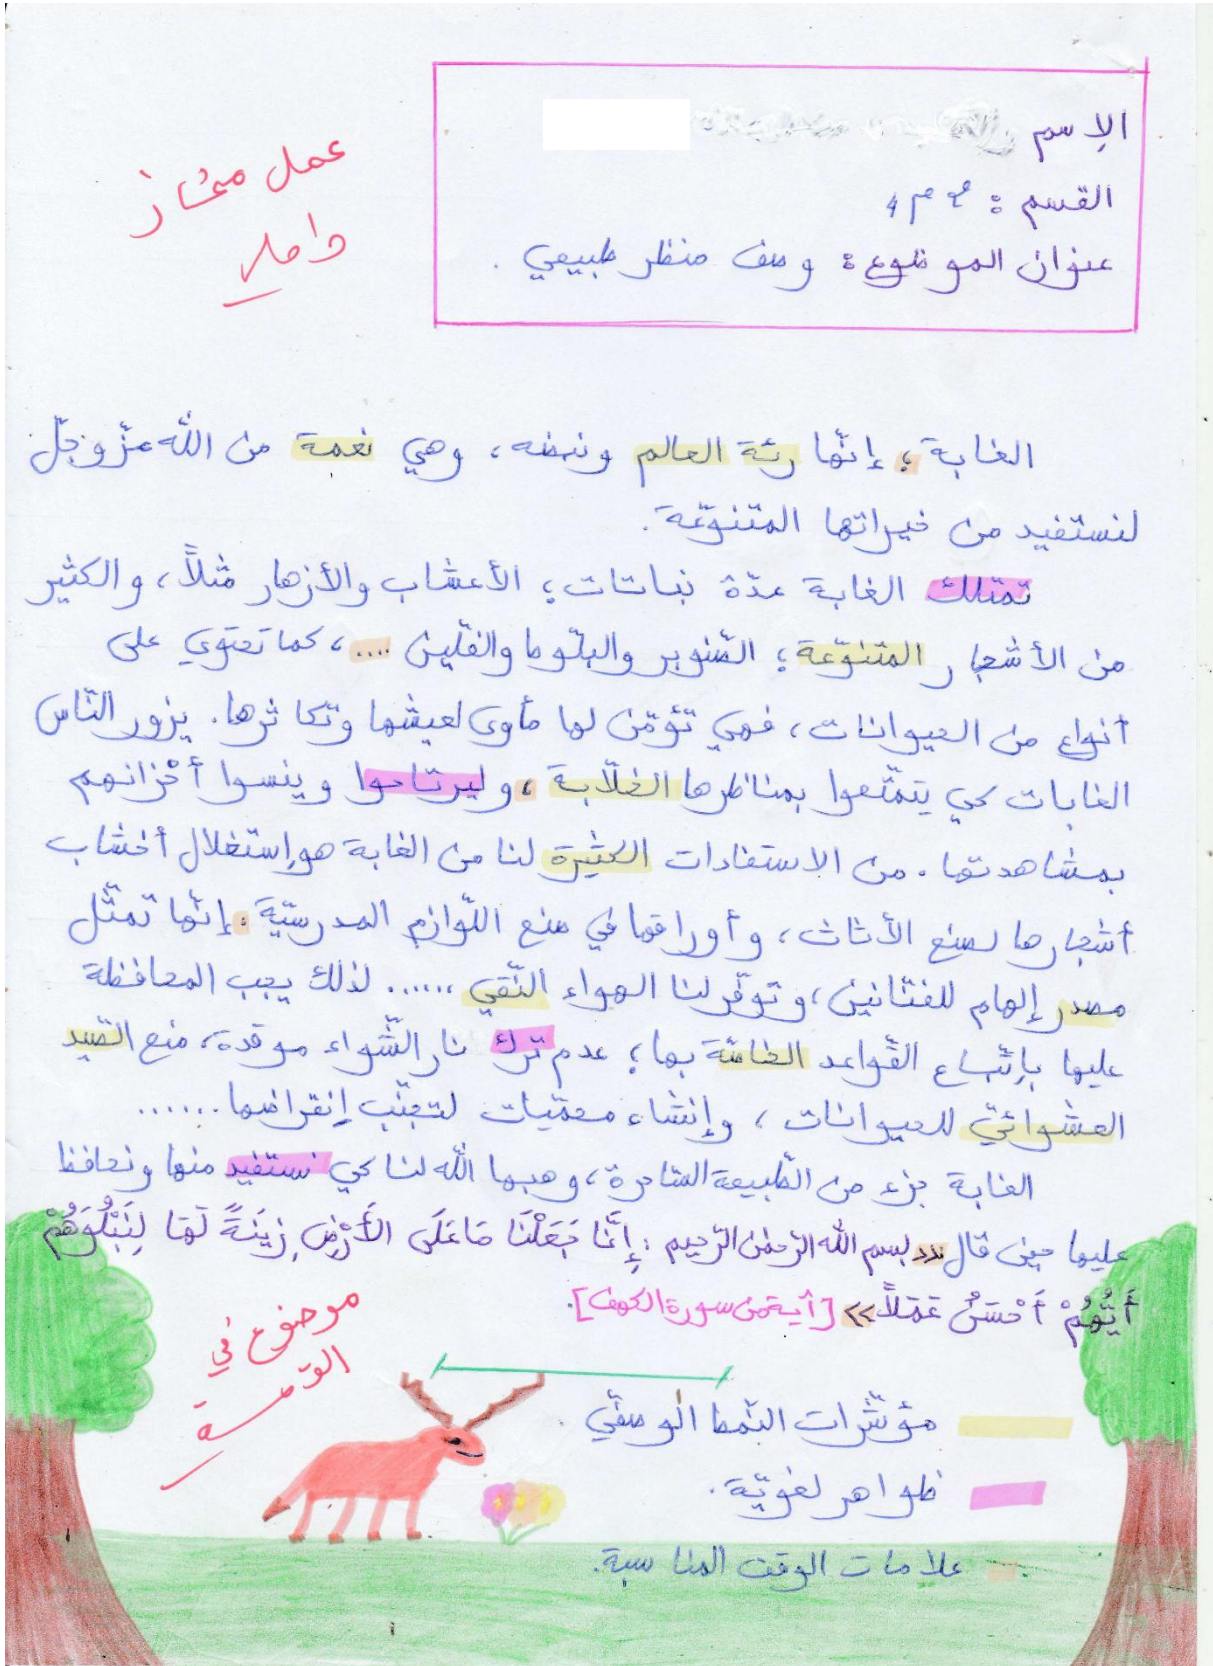 الإسم
القسم : 4 م 2
عنوان الموضوع : وصف منظر طبيعي .
عمل ممتاز
وامل
الغابة ؛ إنّها رئة العالم ونبضه، وهي نعمة من الله عزّ وجلّ
لنستفيد من خيراتها المتنوّعة.
تمتلك الغابة عدّة نباتات ؛ الأعشاب والأزهار مثلاً، والكثير
من الأشجار المتنوّعة ؛ الصّنوبر والبلّوط والفلّين ....، كما تحتوي على
أنواع من الحيوانات، فهي تؤمّن لها مأوى لعيشها وتكاثرها. يزور النّاس
الغابات كي يتمتّعوا بمناظرها الخلّابة ، وليرتاحوا وينسوا أحْزانهم
بمشاهدتها. من الاستفادات الكثيرة لنا من الغابة هو إستغلال أخشاب
أشجارها لصنع الأثاث، وأوراقها في صنع اللّوازم المدرسيّة . إنّها تمثّل
مصدر إلهام للفنّانين، وتوفّر لنا الهواء النّقي ...... لذلك يجب المحافظة
عليها بإتّباع القّواعد الخاصّة بها ؛ عدم ترك نار الشّواء موقدة، منع الصّيد
العشوائيّ للحيوانات ، وإنشاء محميّات لتجنّب إنقراضها .......
الغابة جزء من الطّبيعة السّاحرة، وهبها الله لنا كي نستفيد منها ونحافظ
عليها حين قال >> بسم الله الرّحمٰن الرّحيم : إِنَّا جَعَلْنَا مَا عَلَى الأَرْضِ زِينَةً لَهَا لِنَبْلُوَهُمْ
أَيُّهُمْ أَحْسَنُ عَمَلاً<< [آية من سورة الكهف].
موضوع في
القمة
مؤشّرات النّمط الوصفّي
ظواهر لغويّة .
علامات الوقف المناسبة.